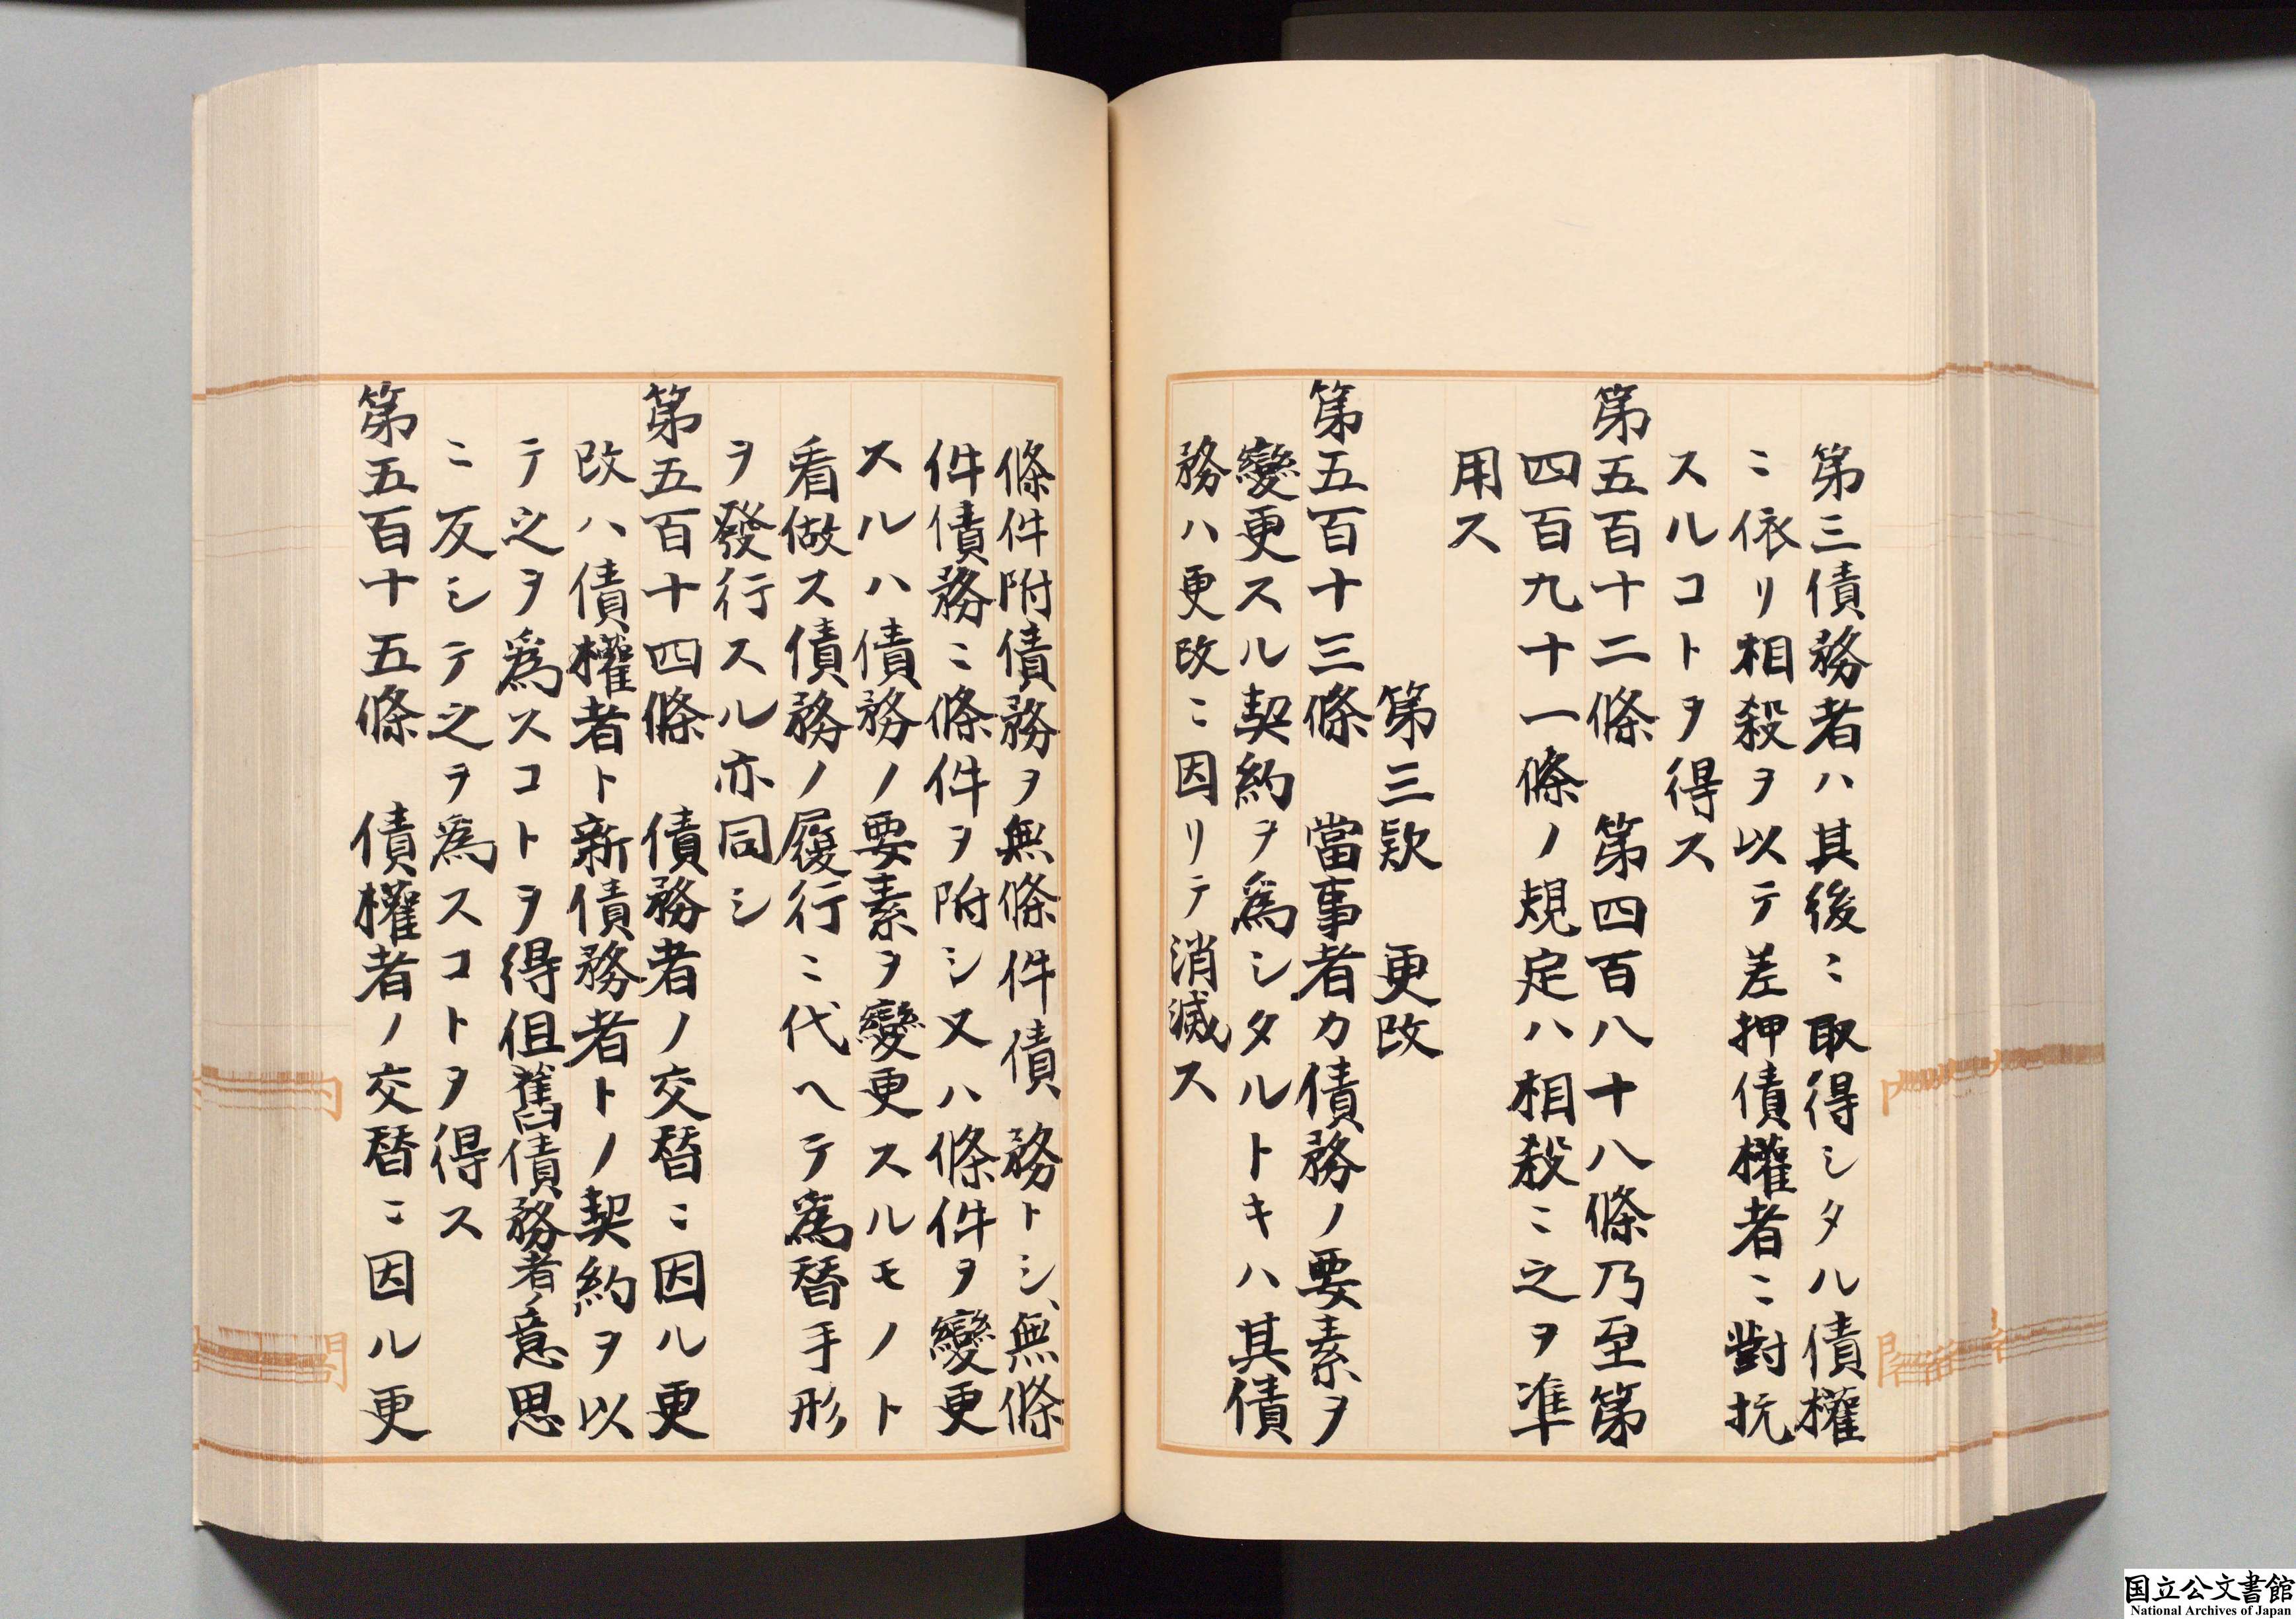 第三債務者ハ其後ニ取得シタル債權
ニ依リ相殺ヲ以テ差押債權者ニ對抗
スルコトヲ得ス
第五百十二條　第四百八十八條乃至第
四百九十一條ノ規定ハ相殺ニ之ヲ準
用ス
第三款　更改
第五百十三條　當事者カ債務ノ要素ヲ
變更スル契約ヲ爲シタルトキハ其債
務ハ更改ニ因リテ消滅ス
條件附債務ヲ無條件債務トシ、無條
件債務ニ條件ヲ附シ又ハ條件ヲ變更
スルハ債務ノ要素ヲ變更スルモノト
看做ス債務ノ履行ニ代ヘテ爲替手形
ヲ發行スル亦同シ
第五百十四條　債務者ノ交替ニ因ル更
改ハ債權者ト新債務者トノ契約ヲ以
テ之ヲ爲スコトヲ得但舊債務者ノ意思
ニ反シテ之ヲ爲スコトヲ得ス
第五百十五條　債權者ノ交替ニ因ル更
国立公文書館
National Archives of Japan